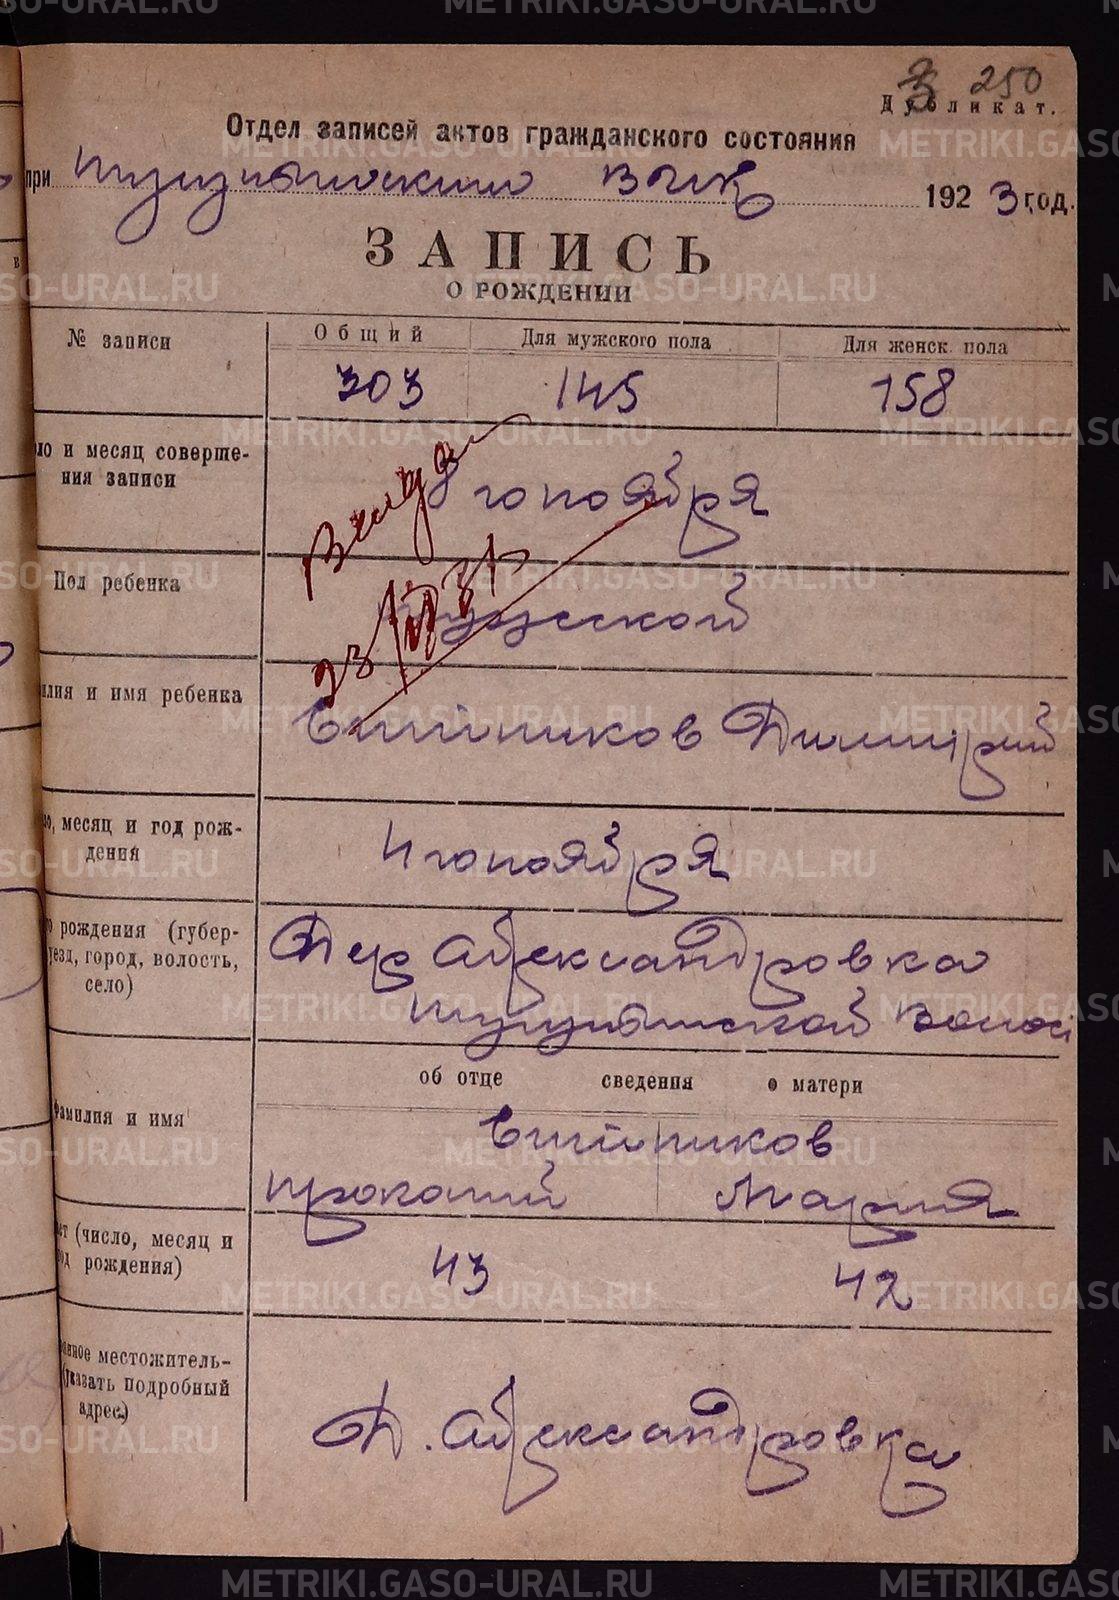 250
Дубликат.
Отдел записей актов гражданского состояния
при 1923 год.
ЗАПИСЬ
О РОЖДЕНИИ
№ записи
Общий Для мужского пола Для женск. пола
303 145 158
ло и месяц соверше-
ния записи
8 гоноября
Пол ребенка
мужеской
илия и имя ребенка
Димитрий
ло, месяц и год рож-
дения
4 гоноября
о рождения (губер-
уезд, город, волость,
село)
Дер Александровка
волос
об отце сведения о матери
Фамилия и имя
Мария
ст (число, месяц и
год рождения)
43 42
янное местожитель-
(указать подробный
адрес.)
Д. Александровка
METRIKI.GASO-URAL.RU